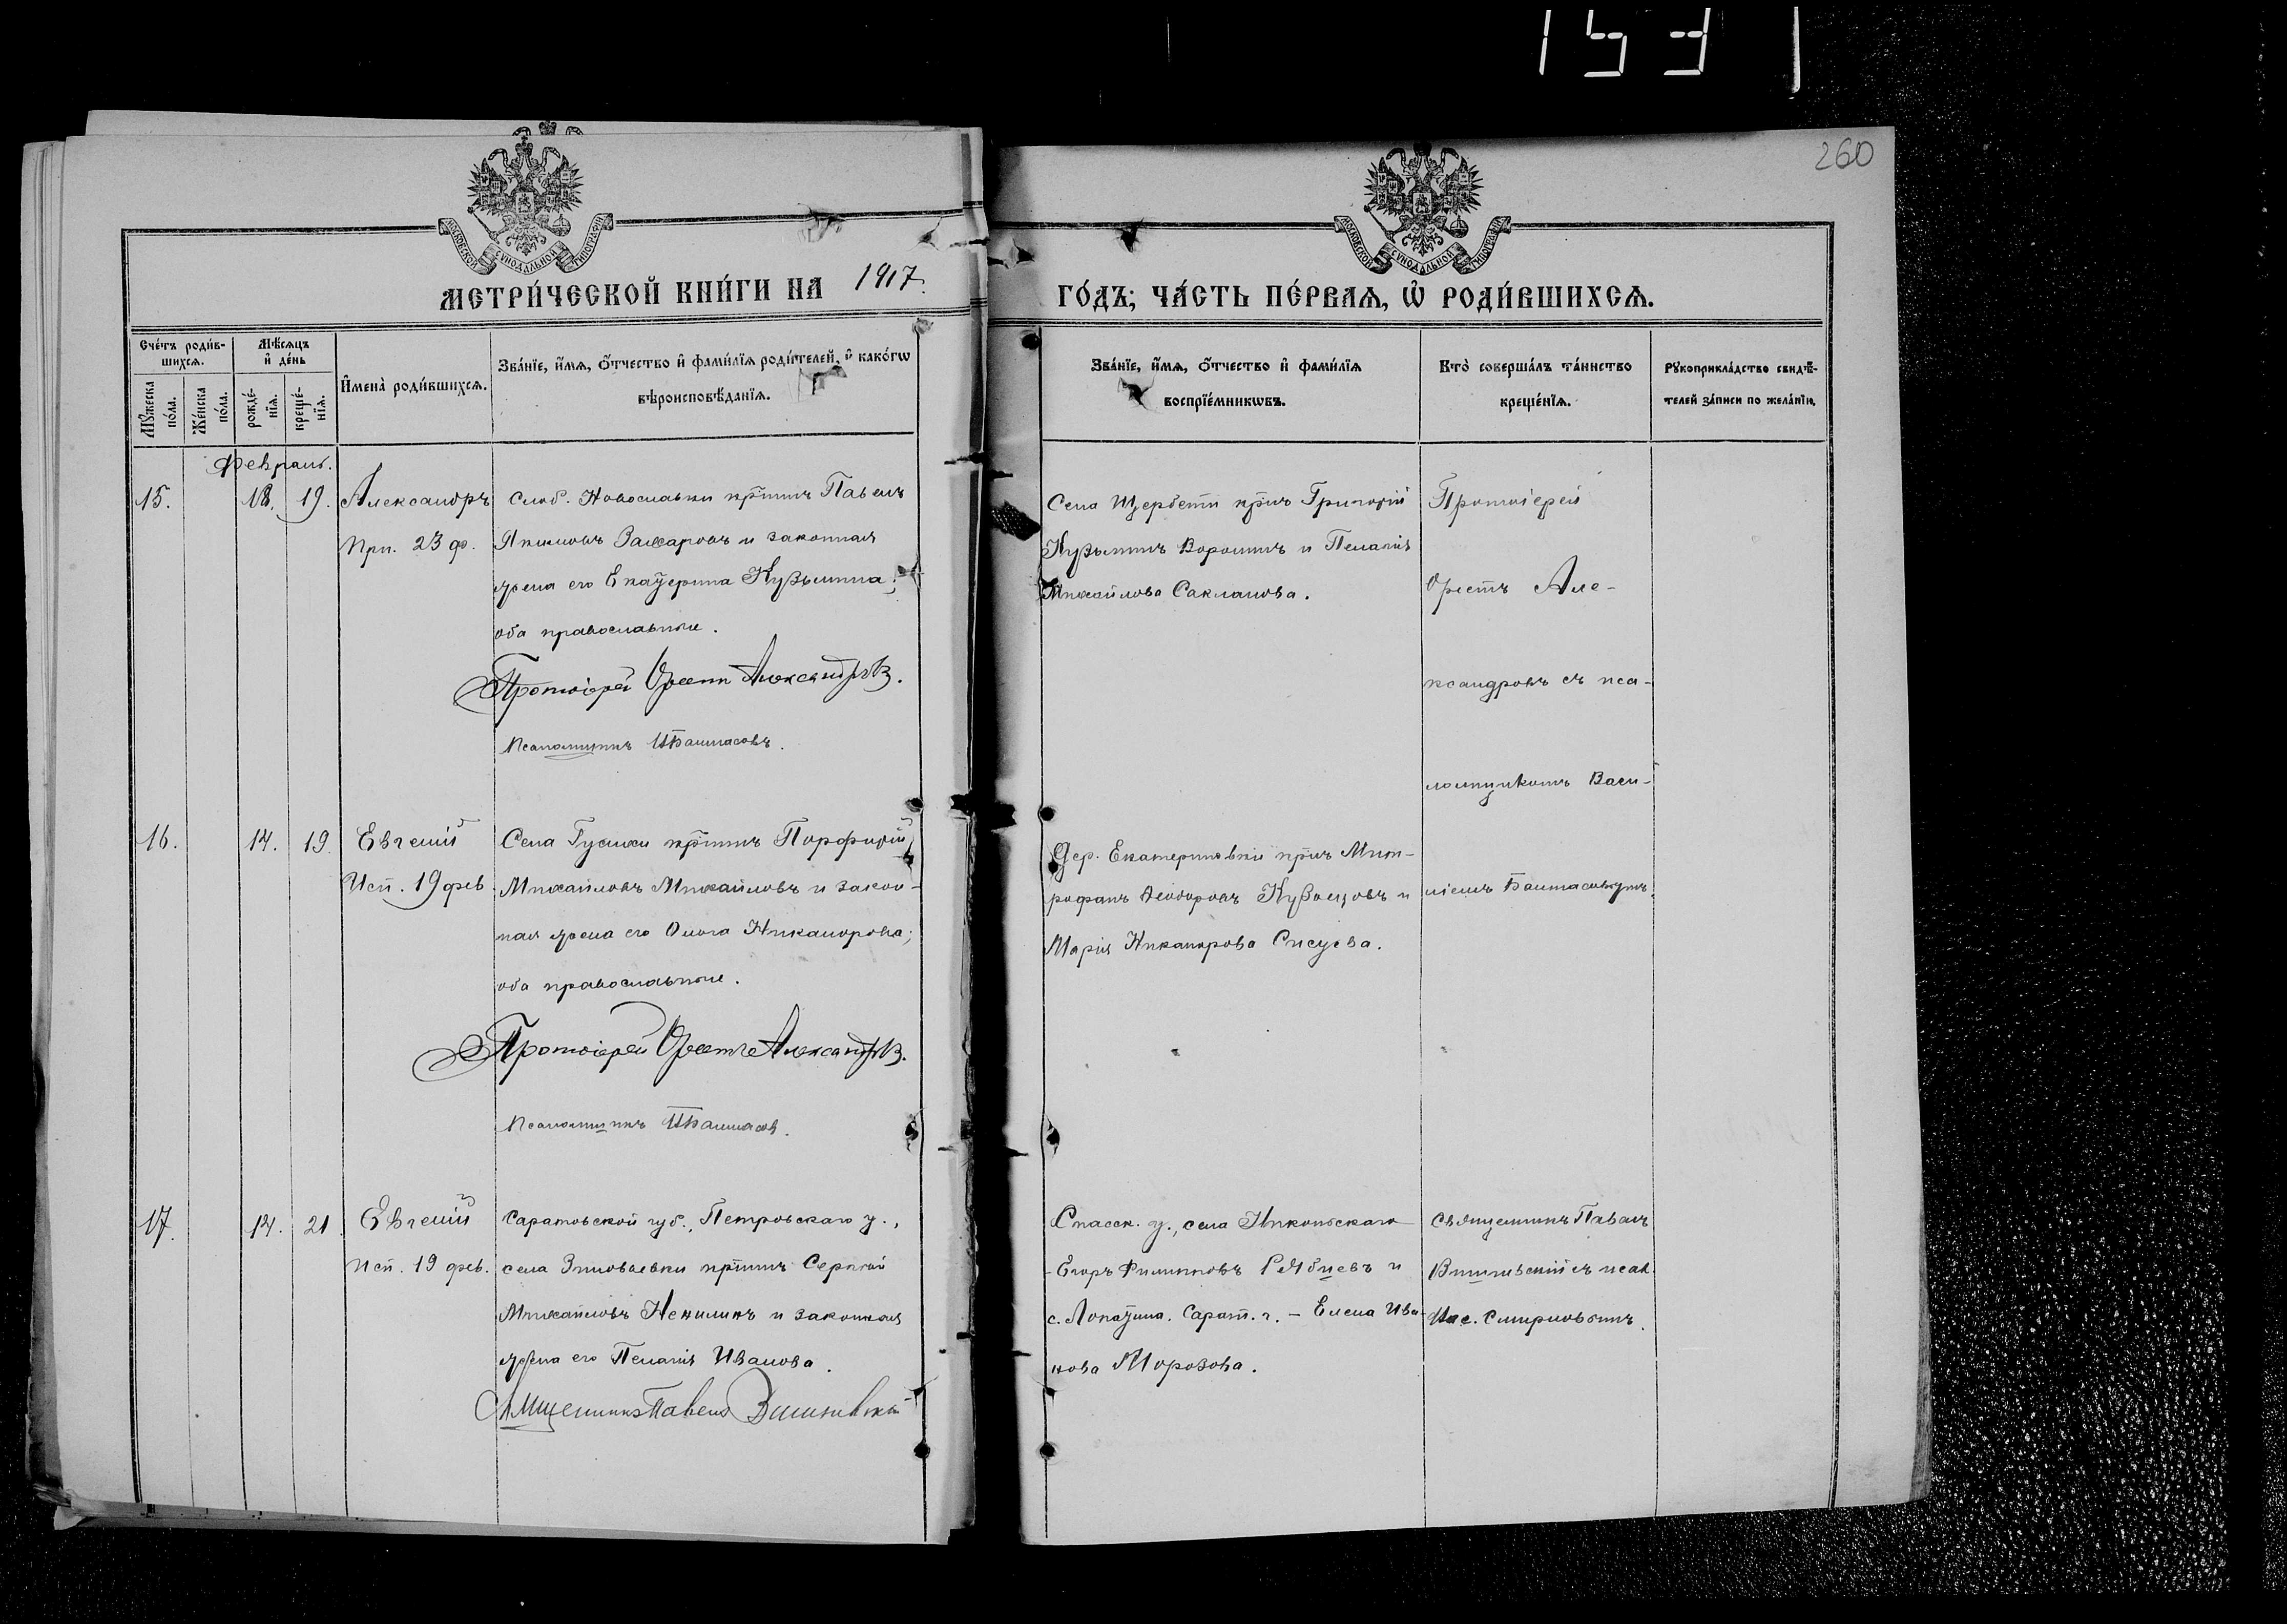 1531
260
МОСКОВСКОЙ СУНОДАЛЬНОЙ ТИПОГРАФІИ
МОСКОВСКОЙ СУНОДАЛЬНОЙ ТИПОГРАФІИ
МЕТРИ́ЧЕСКОЙ КНИ́ГИ НА 1917.
ГО́ДЪ; ЧА́СТЬ ПЕ́РВАѦ, Ѽ РОДИ́ВШИХСѦ.
Сче́тъ роди́в-
шихсѧ.
Мѣ́сѧцъ
и҆ де́нь
Мꙋ́жеска
по́ла.
Же́нска
по́ла.
рожде́-
нїѧ.
креще́-
нїѧ.
И҆мена̀ роди́вшихсѧ.
Зва́нїе, и҆́мѧ, ѻ҆́тчество и҆ фами́лїѧ роди́телей, и҆ како́гѡ
вѣроисповѣ́данїѧ.
Зва́нїе, и҆́мѧ, ѻ҆́тчество и҆ фами́лїѧ
воспрїе́мникѡвъ.
Кто̀ соверша́лъ та́инство
креще́нїѧ.
Рꙋкоприкла́дство свидѣ́-
телей за́писи по жела́нїю.
Февраль.
15.
18.
19.
Александръ
Прп. 23 ф.
Слоб. Новославки кр̃нинъ Павелъ
Якимовъ Захаровъ и законная
жена его Екатерина Кузьмина;
оба православные.
Протоіерей Орестъ Александровъ.
Псаломщикъ Балтасовъ.
Села Щербети кр̃нъ Григорій
Кузьминъ Воронинъ и Пелагія
Михайлова Сакланова.
Протоіерей
Орестъ Але-
ксандровъ съ пса-
ломщикомъ Васи-
ліемъ
16.
14.
19.
Евгеній
Исп. 19 фев.
Села Гусихи кр̃нинъ Порфирій
Михайловъ Михайловъ и закон-
ная жена его Ольга Никанорова;
оба православные.
Протоіерей Орестъ Александровъ.
Псаломщикъ Балтасовъ.
Дер. Екатериновки кр̃нъ Мит-
рофанъ Ѳеодоровъ Кузнецовъ и
Марія Никанорова Сисуева.
17.
14.
21.
Евгеній
Исп. 19 фев.
Саратовской губ., Петровскаго у.,
села Зиновьевки кр̃нинъ Сергѣй
Михайловъ Ненилинъ и законная
жена его Пелагія Иванова.
Священникъ Павелъ Вишневскій
Спасск. у., села Никольскаго
Егоръ Филипповъ Рябцевъ и
с. Лопатина. Сарат. г. – Елена Ива-
нова Морозова.
Священникъ Павелъ
Вишневскій съ псал.
Смирновымъ.